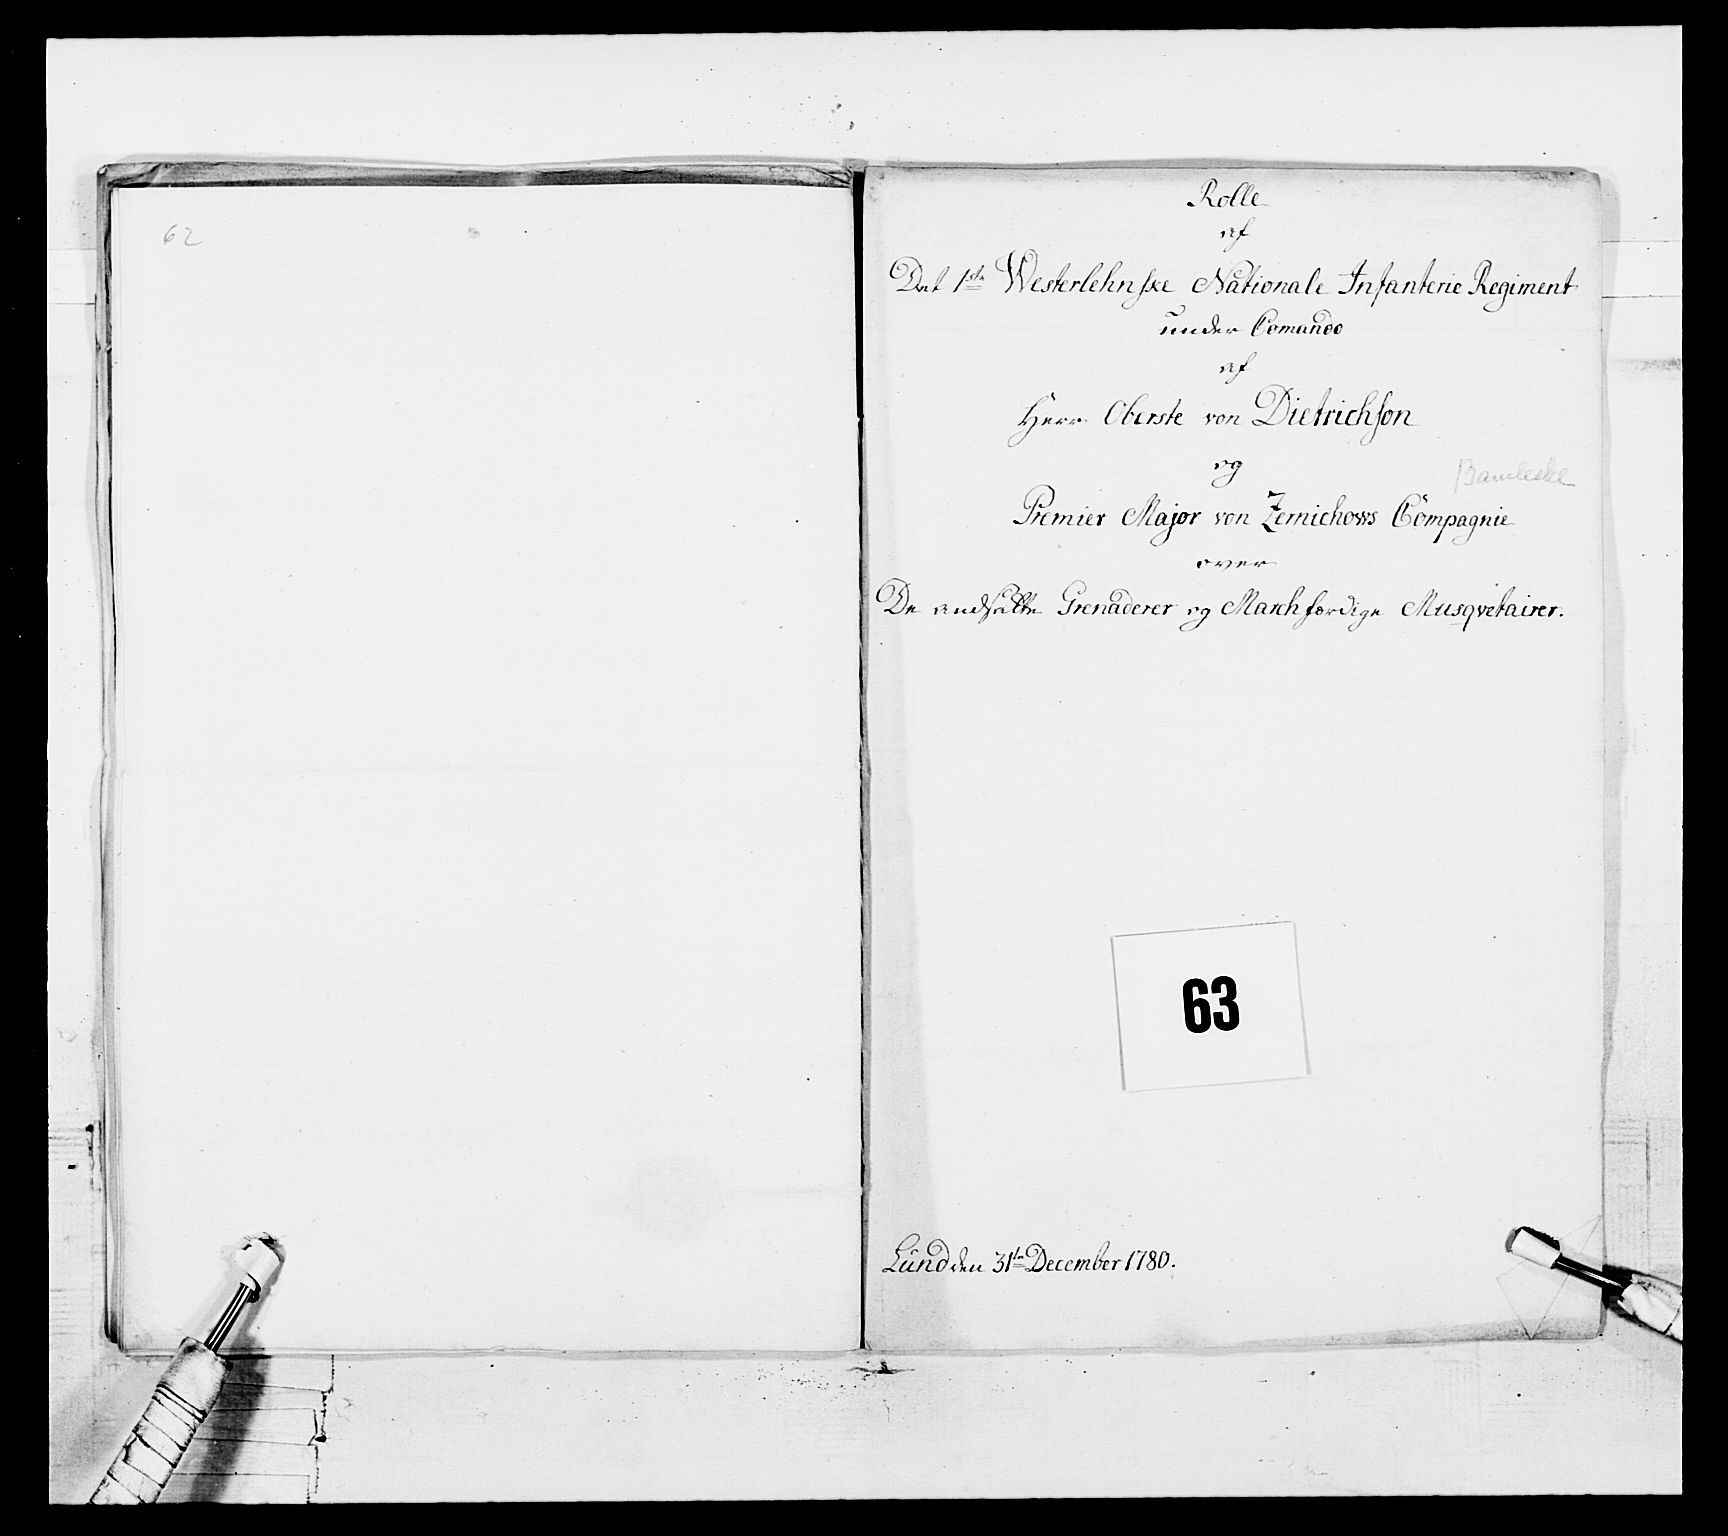 62
Rolle
af
Det 1ste Westerlehnske Nationale Infanterie Regiment
under Comando
af
Herr Oberste von Dietrichson
og
Bamleske
Premier Major von Zernichows Compagnie
over
De andsatte Grenaderer og Marchfærdige Musqvetairer.
63
Lund den 31te December 1780.